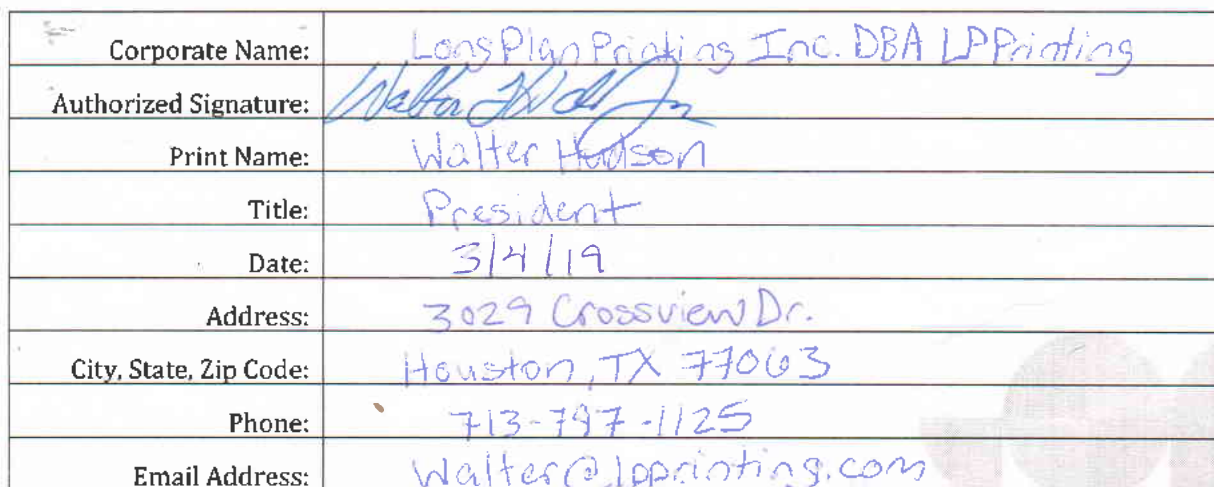 Corporate Name: LongPlan Printing Inc. DBA LPPrinting
Authorized Signature: Walter
Print Name: Walter Hudson
Title: President
Date: 3/4/19
Address: 3029 Crossview Dr.
City, State, Zip Code: Houston, TX 77063
Phone: 713-797-1125
Email Address: Walter@lpprinting.com